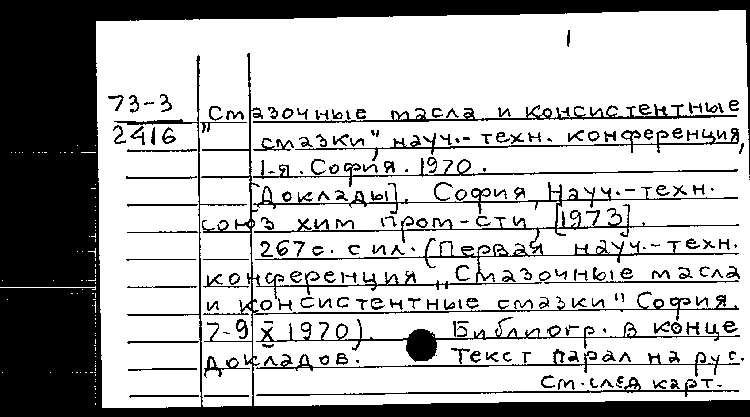 1
73-3
2416
„Смазочные масла и консистентные
смазки", науч.-техн. конференция,
1-я. София. 1970.
[Доклады]. София, Науч.-техн.
союз хим пром-сти, [1973].
267 с. с ил. (Первая науч.-техн.
конференция „Смазочные масла
и консистентные смазки". София.
7-9 X 1970). Библиогр. в конце
докладов. Текст парал на рус.
См. след карт.